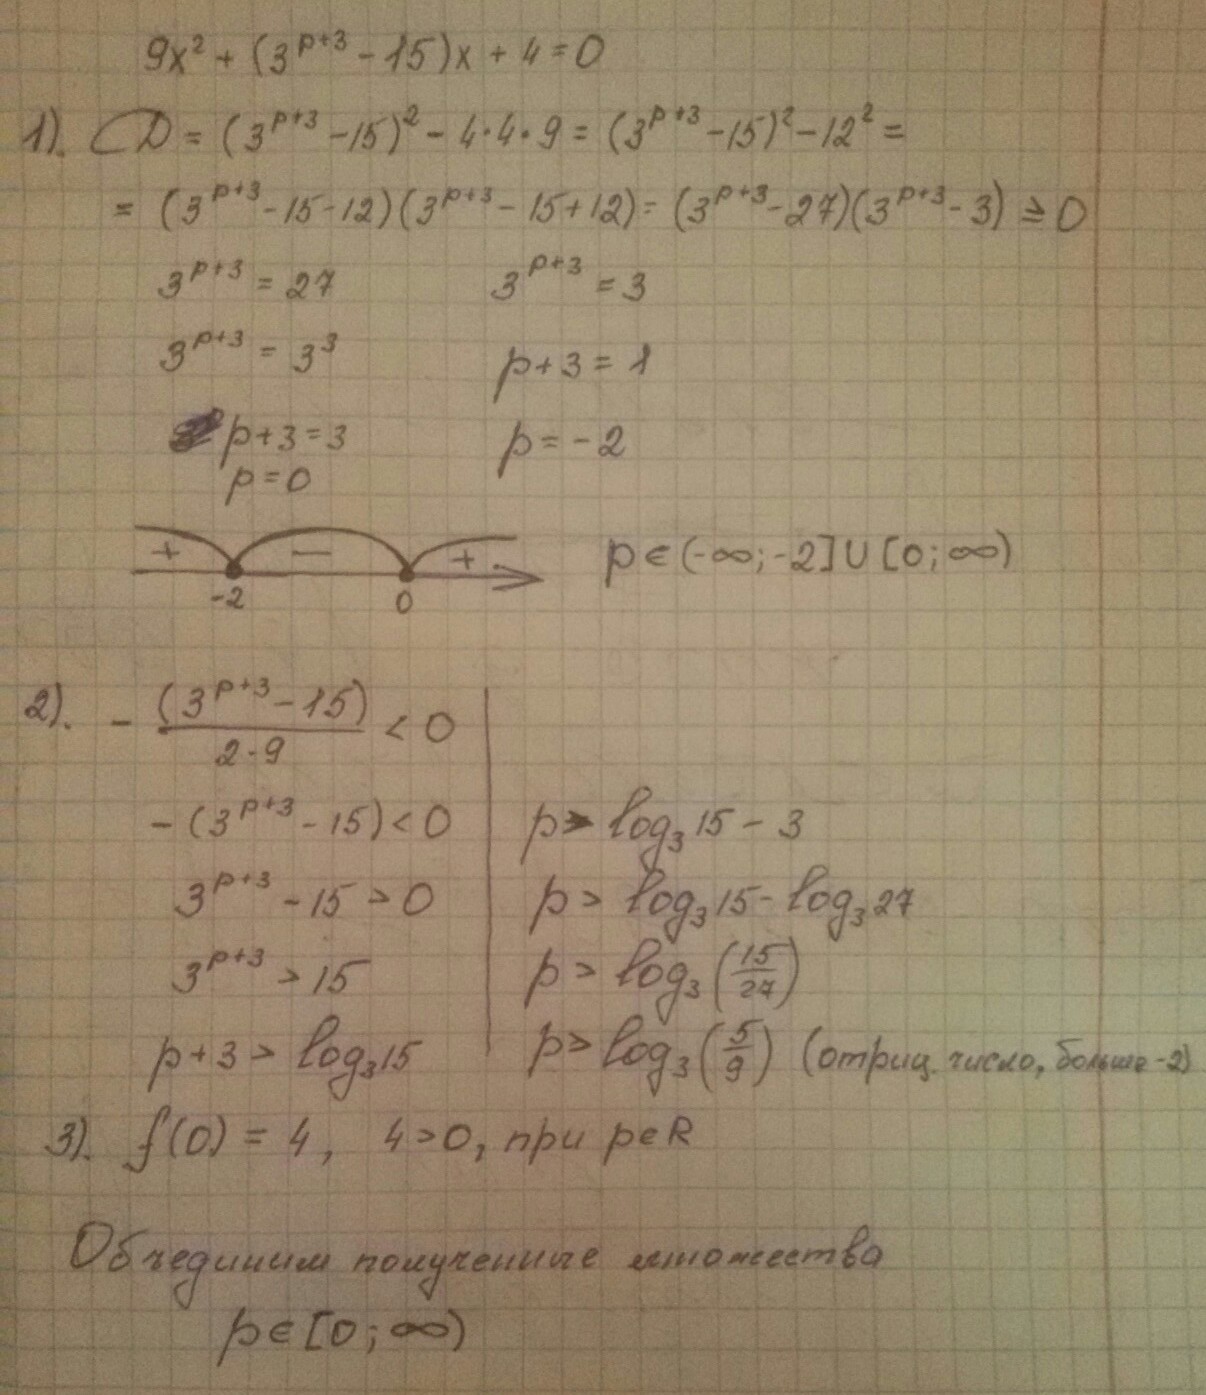 9x² + (3^{p+3} - 15)x + 4 = 0
1). D = (3^{p+3} - 15)² - 4·4·9 = (3^{p+3} - 15)² - 12² =
= (3^{p+3} - 15 - 12)(3^{p+3} - 15 + 12) = (3^{p+3} - 27)(3^{p+3} - 3) ≥ 0
3^{p+3} = 27 3^{p+3} = 3
3^{p+3} = 3³ p + 3 = 1
p + 3 = 3 p = -2
p = 0
+ — + p ∈ (-∞; -2] ∪ [0; ∞)
-2 0
2). - (3^{p+3} - 15)/(2·9) < 0
-(3^{p+3} - 15) < 0
3^{p+3} - 15 > 0
3^{p+3} > 15
p + 3 > log₃15
p > log₃15 - 3
p > log₃15 - log₃27
p > log₃(15/27)
p > log₃(5/9) (отриц. число, больше -2)
3). f(0) = 4, 4 > 0, при p ∈ R
Объединим полученные множества
p ∈ [0; ∞)